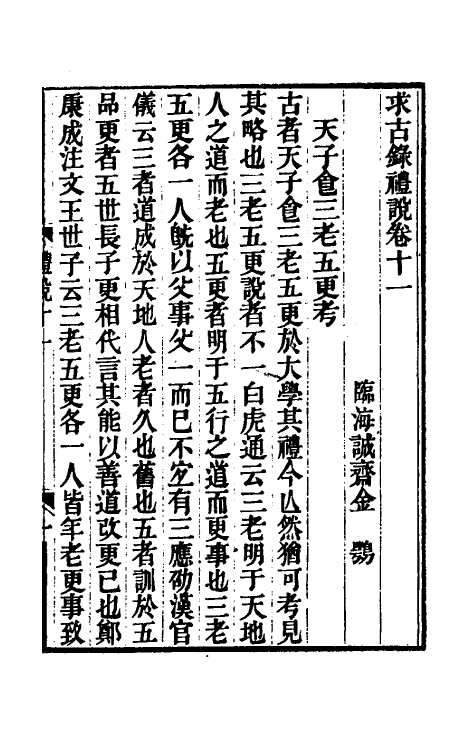 求古錄禮說卷十一
臨海誠齋金鶚
天子食三老五更考
古者天子食三老五更於大學其禮今亾然猶可考見
其略也三老五更說者不一白虎通云三老明于天地
人之道而老也五更者明于五行之道而更事也三老
五更各一人旣以父事父一而已不宐有三應劭漢官
儀云三者道成於天地人老者久也舊也五者訓於五
品更者五世長子更相代言其能以善道改更已也鄭
康成注文王世子云三老五更各一人皆年老更事致
禮說十一
一